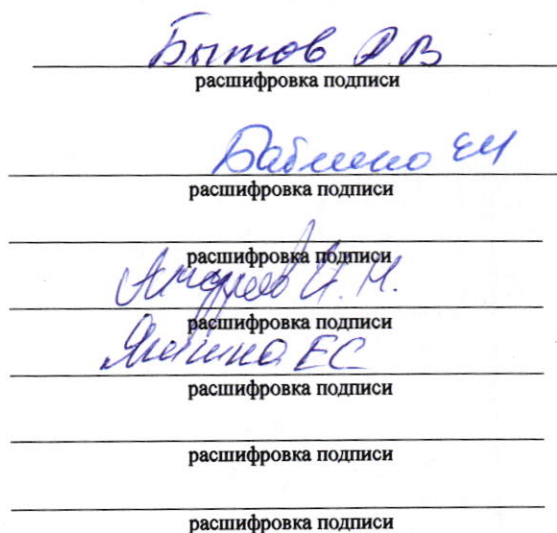 Бытов Р.В
расшифровка подписи
ЕИ
расшифровка подписи
расшифровка подписи
Андреев И. Н.
расшифровка подписи
ЕС
расшифровка подписи
расшифровка подписи
расшифровка подписи